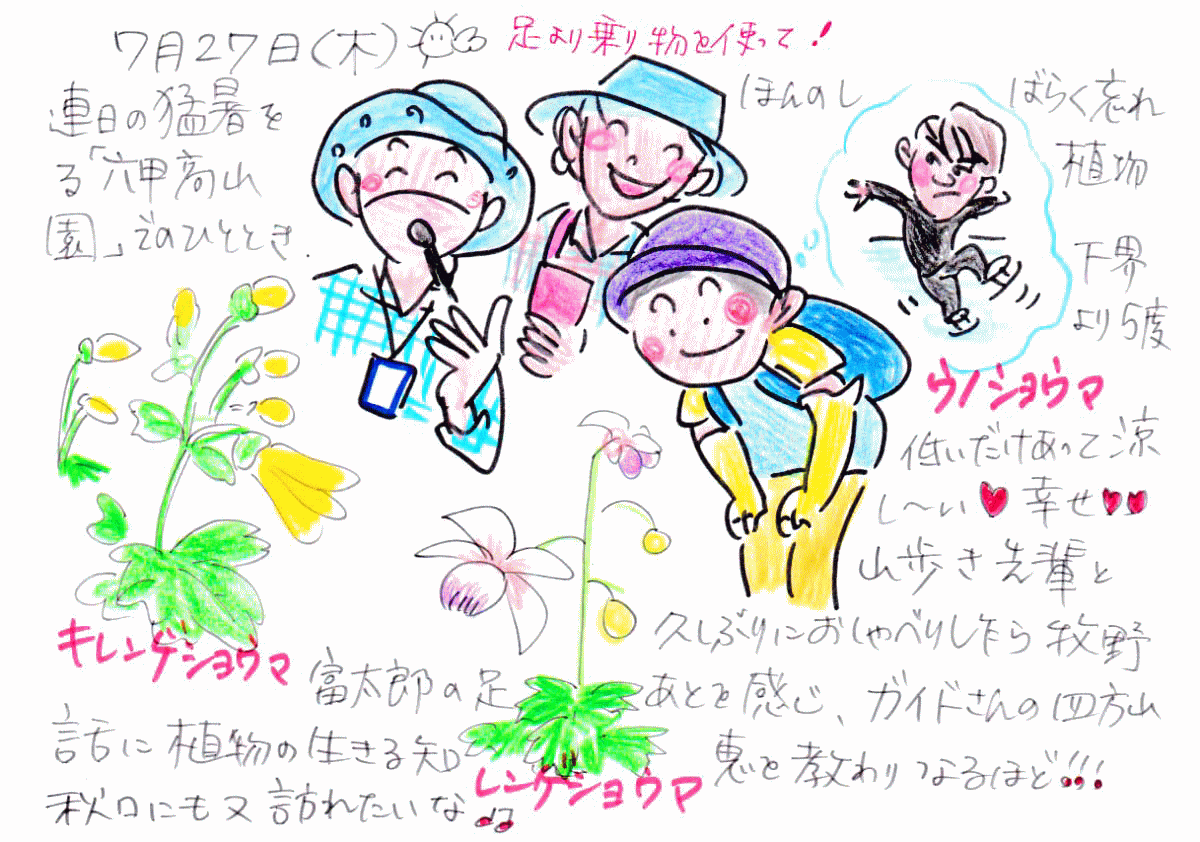 7月27日(木) 足より乗り物を使って!
連日の猛暑を ほんのし ばらく忘れ
る「六甲高山 植物
園」でのひととき. 下界
より5度
ウノショウマ
低いだけあって涼
し〜い♥幸せ♥♥
山歩き先輩と
久しぶりにおしゃべりしたら牧野
キレンゲショウマ
富太郎の足 あとを感じ、ガイドさんの四方山
話に植物の生きる知 恵を教わりなるほど!!!
レンゲショウマ
秋口にも又訪れたいな♫